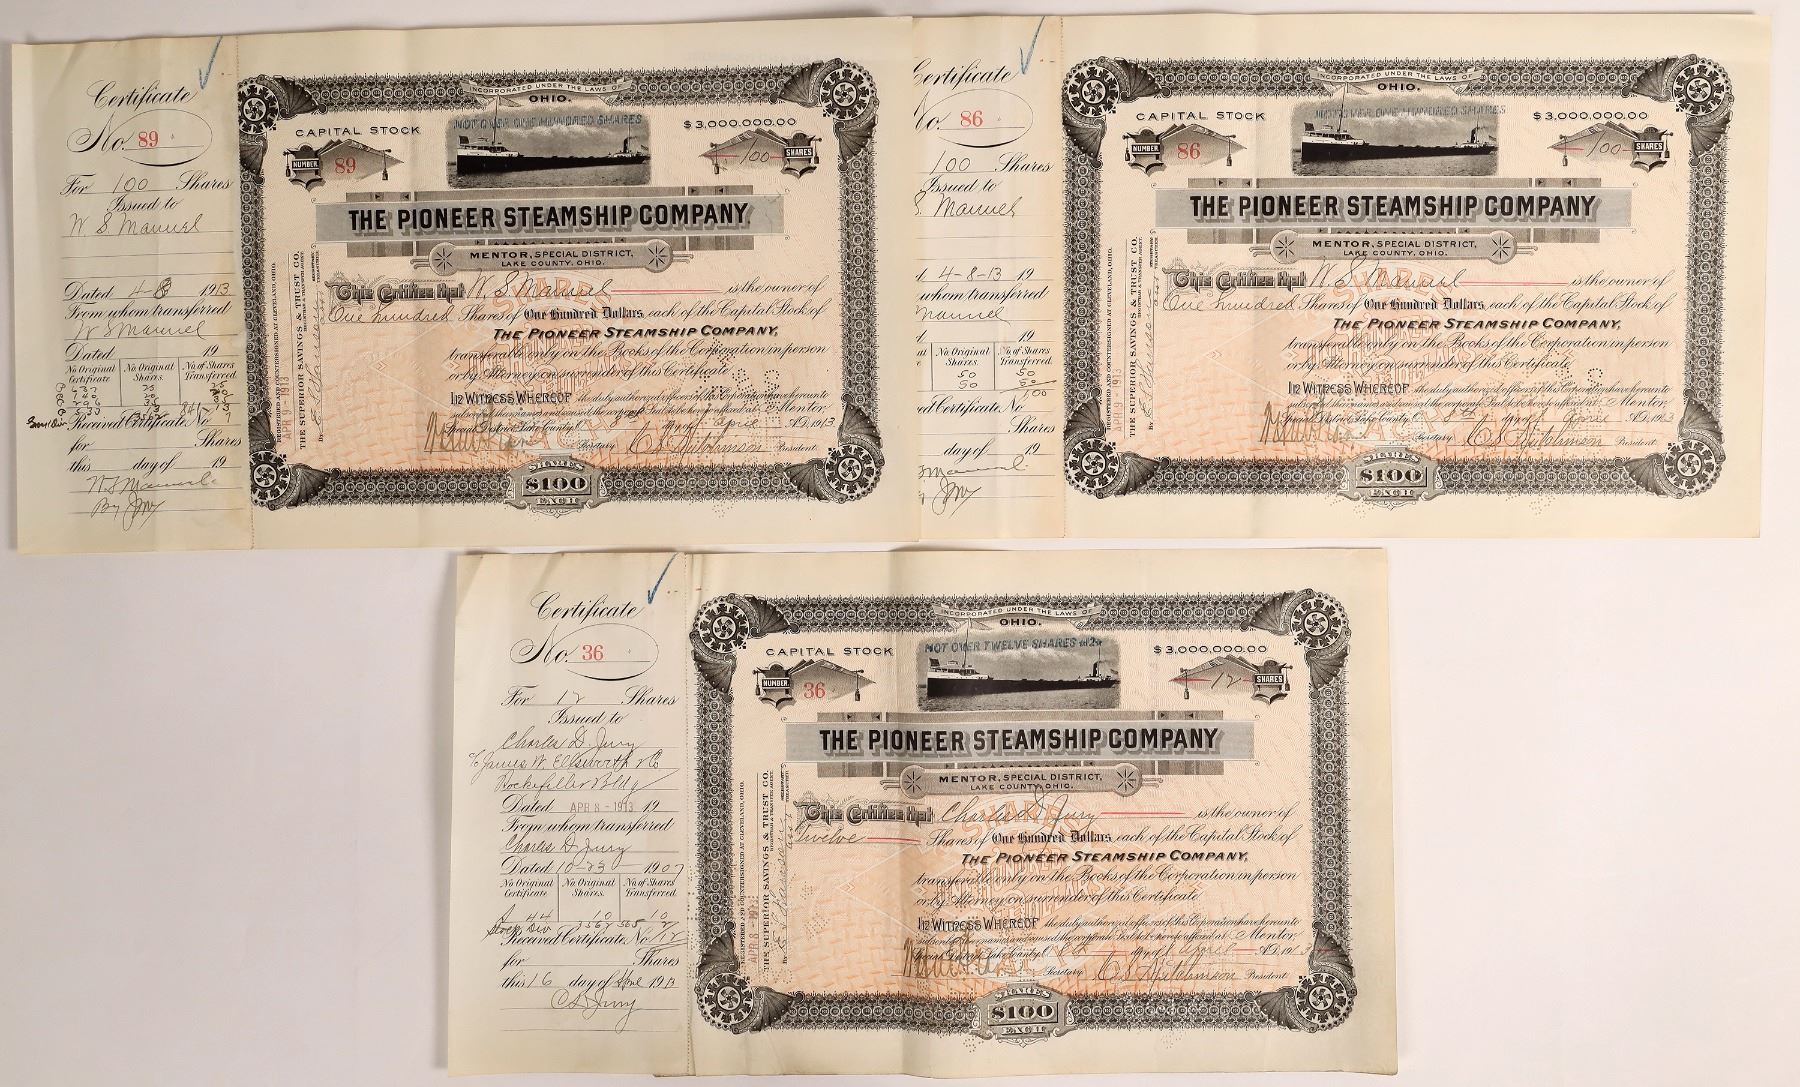 Certificate
No. 89
For 100 Shares
Issued to
W. S. Manuel
Dated 4-8 1913
From whom transferred
W S Manuel
Dated 19
No. Original Certificate No. Original Shares. No. of Shares Transferred.
Received Certificate No
for Shares
this day of 19
W S Manuel
By
INCORPORATED UNDER THE LAWS OF
OHIO.
CAPITAL STOCK NOT OVER ONE HUNDRED SHARES $3,000,000.00
NUMBER 89 100 SHARES
THE PIONEER STEAMSHIP COMPANY
MENTOR, SPECIAL DISTRICT,
LAKE COUNTY, OHIO.
This Certifies that W. S. Manuel is the owner of
One hundred Shares of One Hundred Dollars, each of the Capital Stock of
THE PIONEER STEAMSHIP COMPANY,
transferable only on the Books of the Corporation in person
or by Attorney on surrender of this Certificate
In Witness Whereof the duly authorized officers of this Corporation have hereunto
subscribed their names and caused the corporate Seal to be hereto affixed at Mentor
Special District, Lake County, O. 8th day of April A.D. 1913
Secretary C. S. Hutchinson President.
SHARES
$100
EACH
REGISTERED AND COUNTERSIGNED AT CLEVELAND, OHIO.
APR 9 - 1913
THE SUPERIOR SAVINGS & TRUST CO.
Certificate
No. 86
100 Shares
Issued to
S. Manuel
4-8-13 19
whom transferred
Manuel
19
No. Original Shares. No. of Shares Transferred.
50 50
50 50
100
Certificate No
Shares
day of 19
Manuel
INCORPORATED UNDER THE LAWS OF
OHIO.
CAPITAL STOCK NOT OVER ONE HUNDRED SHARES $3,000,000.00
NUMBER 86 100 SHARES
THE PIONEER STEAMSHIP COMPANY
MENTOR, SPECIAL DISTRICT,
LAKE COUNTY, OHIO.
This Certifies that W. S. Manuel is the owner of
One hundred Shares of One Hundred Dollars, each of the Capital Stock of
THE PIONEER STEAMSHIP COMPANY,
transferable only on the Books of the Corporation in person
or by Attorney on surrender of this Certificate
In Witness Whereof the duly authorized officers of this Corporation have hereunto
subscribed their names and caused the corporate Seal to be hereto affixed at Mentor
Special District, Lake County, O. 8th day of April A.D. 1913
Secretary C. S. Hutchinson President.
SHARES
$100
EACH
REGISTERED AND COUNTERSIGNED AT CLEVELAND, OHIO.
APR 9 - 1913
THE SUPERIOR SAVINGS & TRUST CO.
Certificate
No. 36
For 12 Shares
Issued to
Charles D. Jury
c/o James W Ellsworth & Co
Rockefeller Bldg
Dated APR 8 - 1913 19
From whom transferred
Charles D. Jury
Dated 10-23 1907
No. Original Certificate No. Original Shares. No. of Shares Transferred.
44 10 10
Stock Div 3565 2
Received Certificate No 12
for Shares
this 16 day of April 1913
C D Jury
INCORPORATED UNDER THE LAWS OF
OHIO.
CAPITAL STOCK NOT OVER TWELVE SHARES $3,000,000.00
NUMBER 36 12 SHARES
THE PIONEER STEAMSHIP COMPANY
MENTOR, SPECIAL DISTRICT,
LAKE COUNTY, OHIO.
This Certifies that Charles D Jury is the owner of
Twelve Shares of One Hundred Dollars, each of the Capital Stock of
THE PIONEER STEAMSHIP COMPANY,
transferable only on the Books of the Corporation in person
or by Attorney on surrender of this Certificate
In Witness Whereof the duly authorized officers of this Corporation have hereunto
subscribed their names and caused the corporate Seal to be hereto affixed at Mentor
Special District, Lake County, O. 8th day of April A.D. 1913
Secretary C. S. Hutchinson President
SHARES
$100
EACH
REGISTERED AND COUNTERSIGNED AT CLEVELAND, OHIO.
APR 8 1913
THE SUPERIOR SAVINGS & TRUST CO.